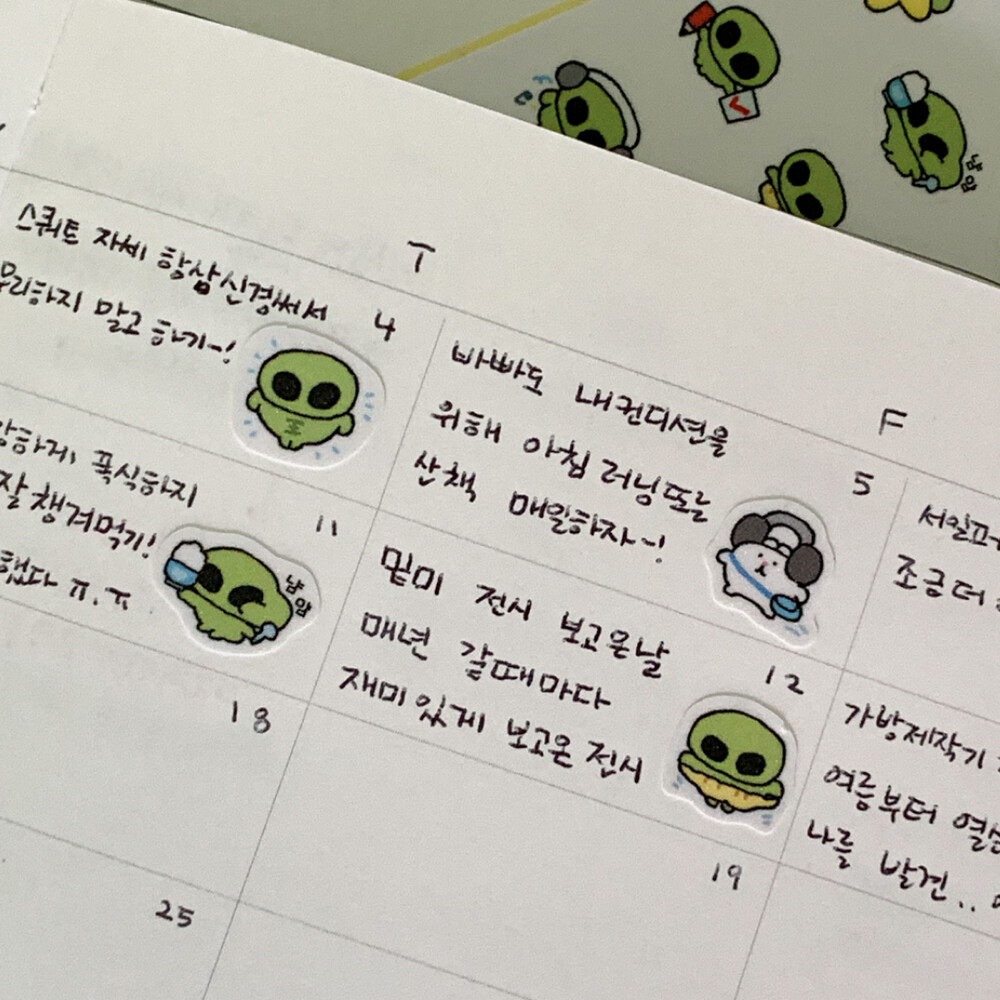 T
F
스쿼트 자세 항상신경써서
무리하지 말고 하기~!
4
바빠도 내컨디션을
위해 아침 러닝또는
산책 매일하자~!
5
조금더
폭식하지
잘챙겨먹기!
했다 ㅠ.ㅠ
11
냠
얌
밑미 전시 보고온날
매년 갈때마다
재미있게 보고온 전시
12
가방제작기
여름부터
나를 발견..
18
19
25
냠
얌